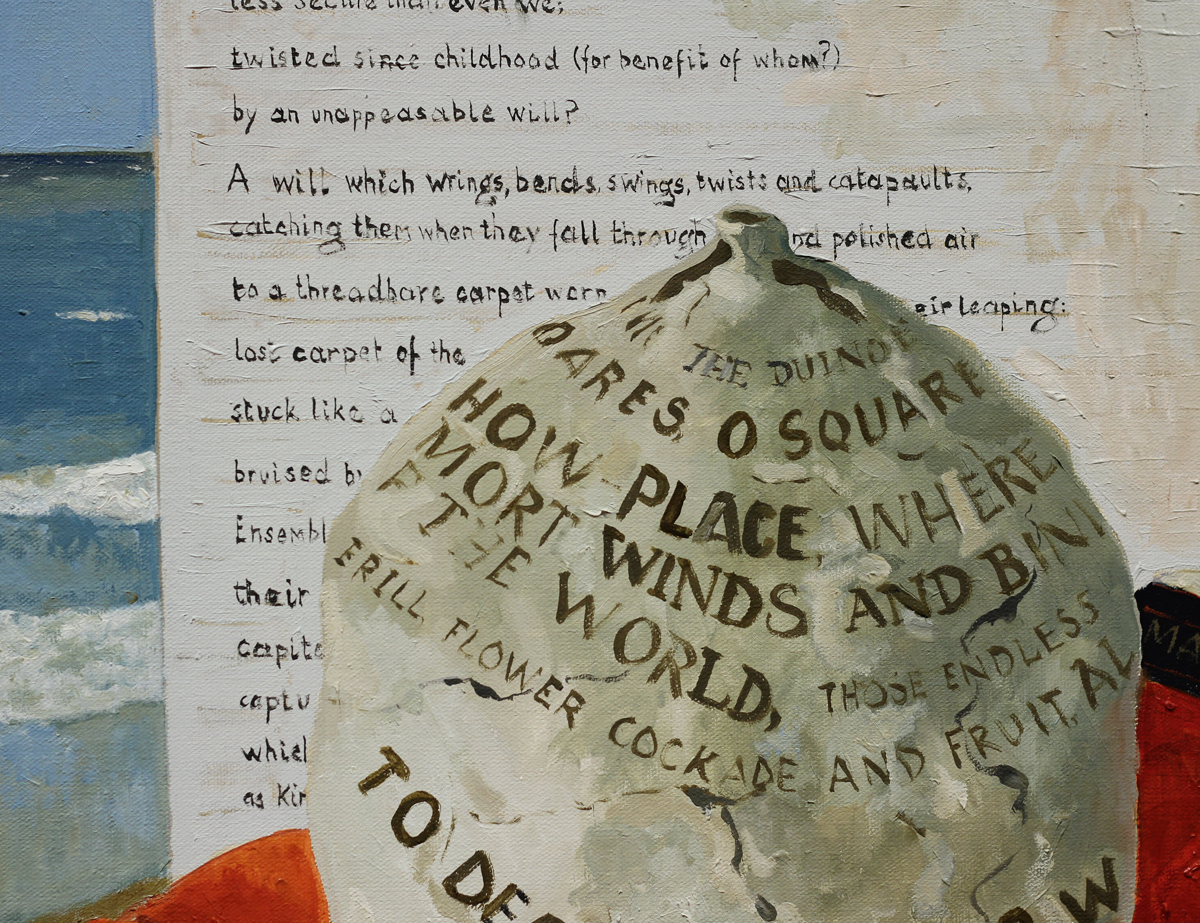 less secure than even we;
twisted since childhood (for benefit of whom?)
by an unappeasable will?
A will which wrings, bends, swings, twists and catapaults,
catching them when they fall through nd polished air
to a threadbare carpet worn eir leaping:
lost carpet of the
stuck like a
bruised by
Ensembl
their
capita
captu
which
as Kin
THE DUINO
DARES, O SQUARE
HOW PLACE, WHERE,
MORT WINDS AND BINI
F THE WORLD, THOSE ENDLESS
ERILL, FLOWER COCKADE AND FRUIT, AL
TO DEA
OW
MA